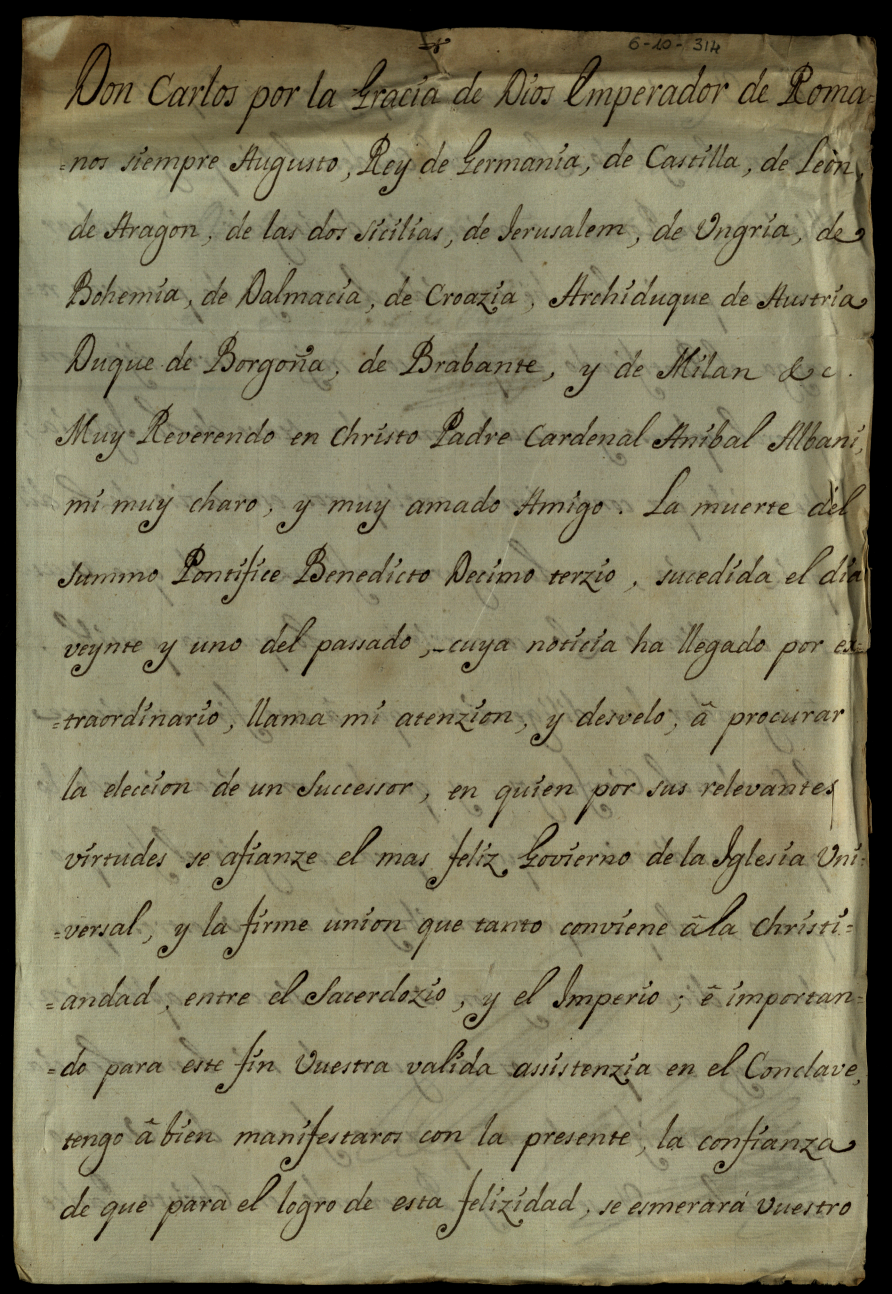 6-20-314
Don Carlos por la Gracia de Dios Emperador de Roma=
=nos siempre Augusto, Rey de Germania, de Castilla, de Leòn,
de Aragon, de las dos Sicilias, de Jerusalem, de Vngria, de
Bohemia, de Dalmacia, de Croazia, Archiduque de Austria
Duque de Borgoña, de Brabante, y de Milan &c.
Muy Reverendo en Christo Padre Cardenal Anibal Albani,
mi muy charo, y muy amado Amigo. La muerte del
Summo Pontifice Benedicto Decimo terzio, sucedida el dia
veynte y uno del passado, cuya noticia ha llegado por ex=
=traordinario, llama mi atenzion, y desvelo, â procurar
la eleccion de un Successor, en quien por sus relevantes
virtudes se afianze el mas feliz Govierno de la Iglesia Vni=
=versal, y la firme union que tanto conviene âla Christi=
=andad, entre el Sacerdozio, y el Imperio; ê importan=
=do para este fin Vuestra valida assistenzia en el Conclave,
tengo â bien manifestaros con la presente, la confianza
de que para el logro de esta felizidad, se esmerará Vuestro